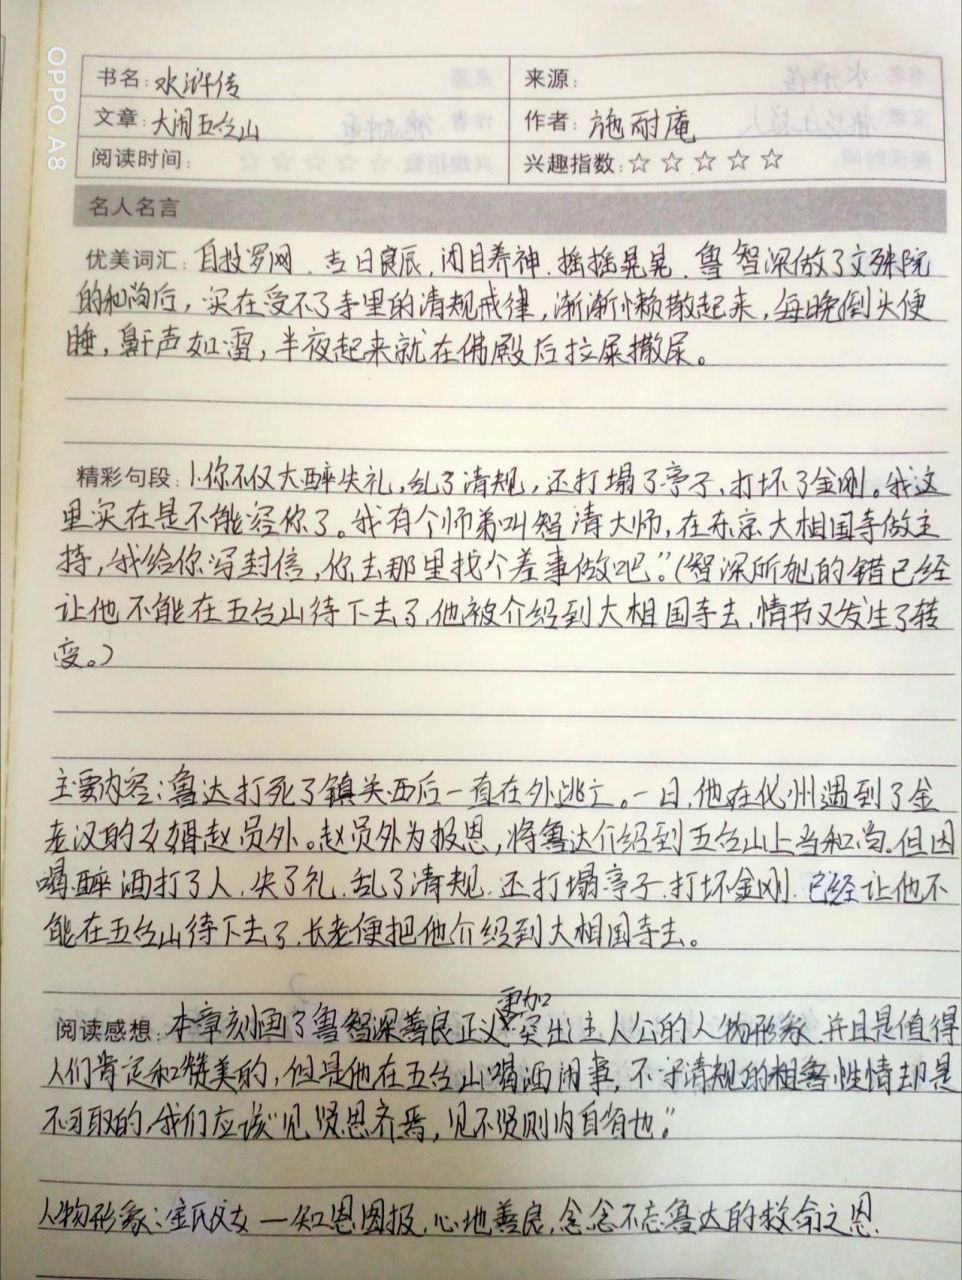 OPPO A8
书名：水浒传 来源：
文章：大闹五台山 作者：施耐庵
阅读时间： 兴趣指数：☆ ☆ ☆ ☆ ☆
名人名言
优美词汇：自投罗网、吉日良辰、闭目养神、摇摇晃晃、鲁智深做了文殊院
的和尚后，实在受不了寺里的清规戒律，渐渐懒散起来，每晚倒头便
睡，鼾声如雷，半夜起来就在佛殿后拉屎撒尿。
精彩句段：1.你不仅大醉失礼，乱了清规，还打塌了亭子，打坏了金刚。我这
里实在是不能容你了。我有个师弟叫智清大师，在东京大相国寺做主
持，我给你写封信，你去那里找个差事做吧。”（智深所犯的错已经
让他不能在五台山待下去了，他被介绍到大相国寺去，情节又发生了转
变。）
主要内容：鲁达打死了镇关西后一直在外逃亡。一日，他在代州遇到了金
老汉的女婿赵员外。赵员外为报恩，将鲁达介绍到五台山上当和尚。但因
喝醉酒打了人，失了礼，乱了清规，还打塌亭子，打坏金刚，已经让他不
能在五台山待下去了，长老便把他介绍到大相国寺去。
更加
阅读感想：本章刻画了鲁智深善良正义，突出主人公的人物形象，并且是值得
人们肯定和赞美的，但是他在五台山喝酒闹事，不守清规的粗鲁性情却是
不可取的，我们应该“见贤思齐焉，见不贤则内自省也。”
人物形象：金氏父女——知恩图报，心地善良，念念不忘鲁达的救命之恩.